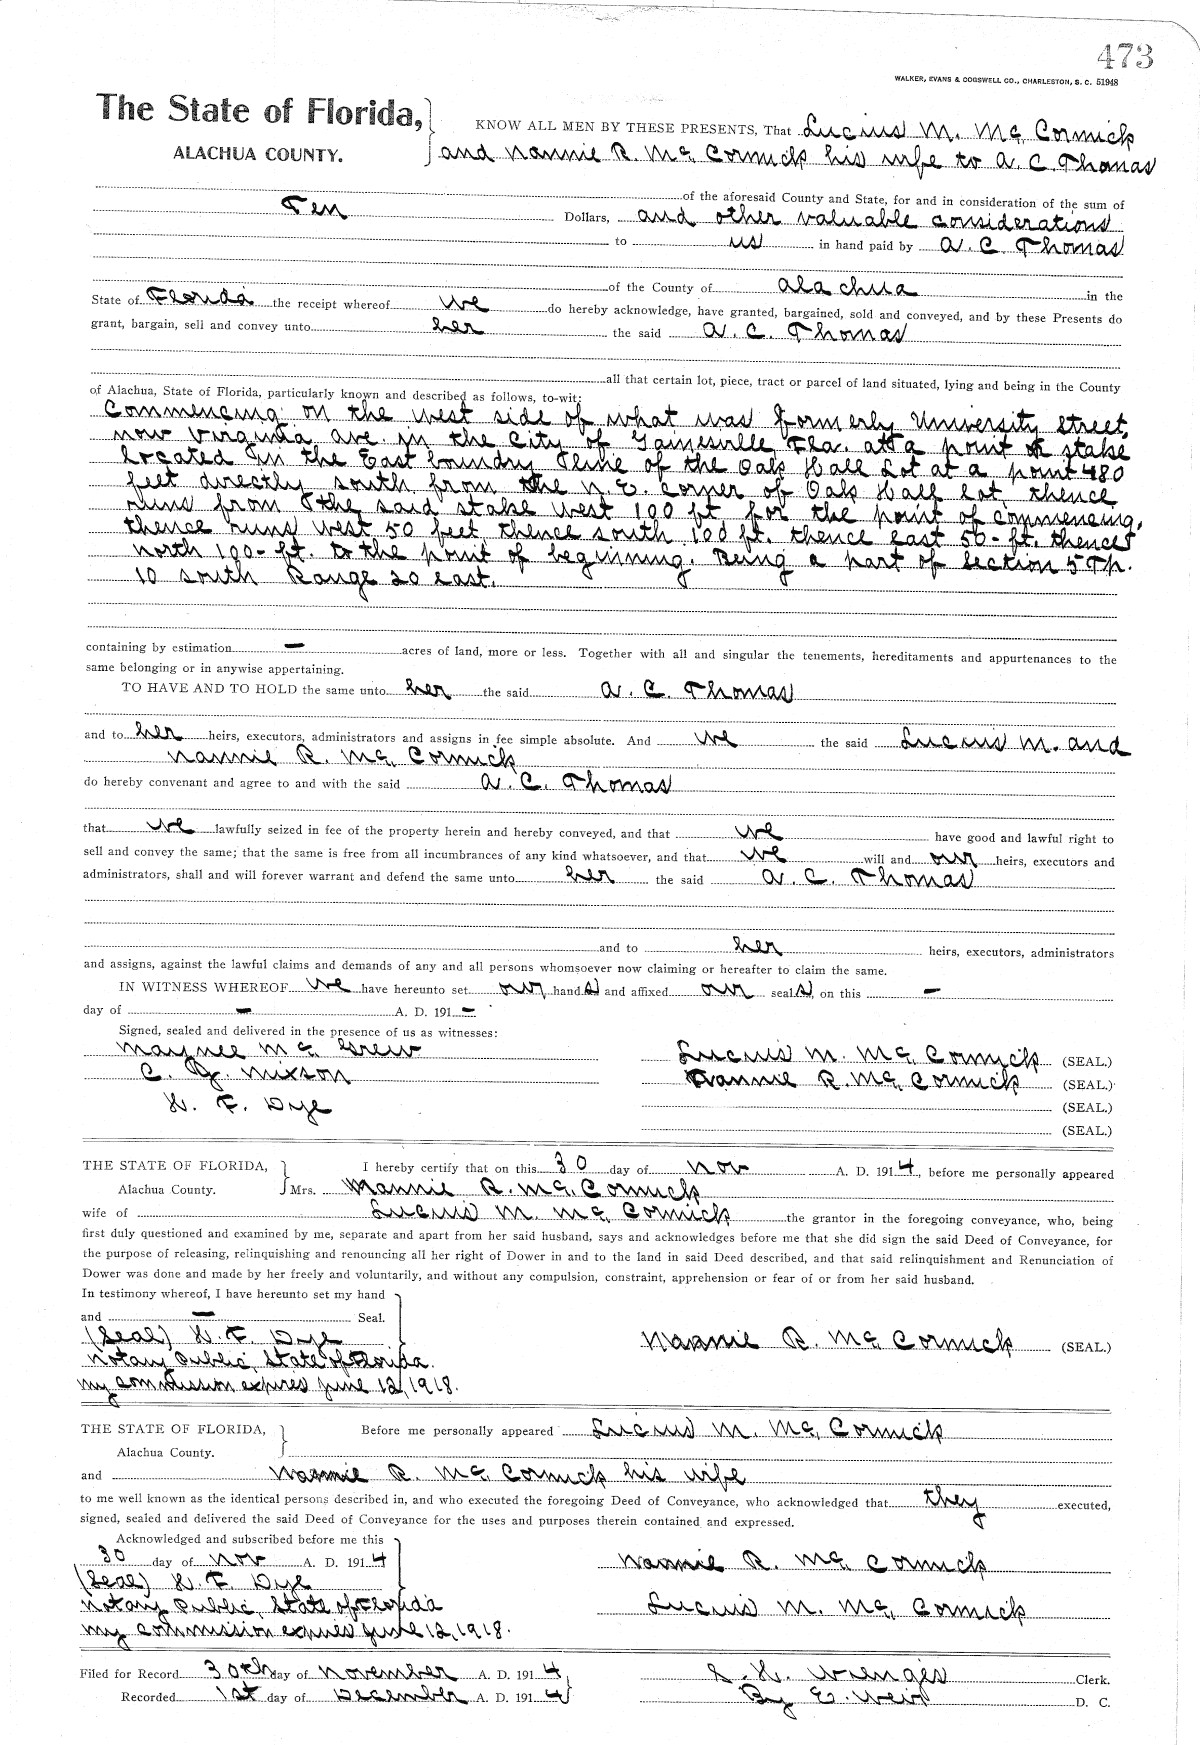 473
WALKER, EVANS & COGSWELL CO., CHARLESTON, S. C. 51948
The State of Florida,
ALACHUA COUNTY.
KNOW ALL MEN BY THESE PRESENTS, That Lucius M. McCormick
and Nannie R. McCormick his wife to A. C. Thomas
of the aforesaid County and State, for and in consideration of the sum of
Ten Dollars, and other valuable considerations
to us in hand paid by A. C. Thomas
of the County of Alachua in the
State of Florida the receipt whereof we do hereby acknowledge, have granted, bargained, sold and conveyed, and by these Presents do
grant, bargain, sell and convey unto her the said A. C. Thomas
all that certain lot, piece, tract or parcel of land situated, lying and being in the County
of Alachua, State of Florida, particularly known and described as follows, to-wit:
Commencing on the west side of what was formerly University Street,
now Virginia ave. in the City of Gainesville, Fla. at a point stake
located in the East boundry line of the Oak Hall Lot at a point 480
feet directly south from the N. E. corner of Oak Hall lot thence
runs from the said stake West 100 ft for the point of commencing,
thence runs West 50 feet, thence south 100 ft. thence east 50-ft. thence
north 100-ft. to the point of beginning. Being a part of Section 5 Tp.
10 south Range 20 east.
containing by estimation - acres of land, more or less. Together with all and singular the tenements, hereditaments and appurtenances to the
same belonging or in anywise appertaining.
TO HAVE AND TO HOLD the same unto her the said A. C. Thomas
and to her heirs, executors, administrators and assigns in fee simple absolute. And we the said Lucius M. and
Nannie R. McCormick
do hereby convenant and agree to and with the said A. C. Thomas
that we lawfully seized in fee of the property herein and hereby conveyed, and that we have good and lawful right to
sell and convey the same; that the same is free from all incumbrances of any kind whatsoever, and that we will and our heirs, executors and
administrators, shall and will forever warrant and defend the same unto her the said A. C. Thomas
and to her heirs, executors, administrators
and assigns, against the lawful claims and demands of any and all persons whomsoever now claiming or hereafter to claim the same.
IN WITNESS WHEREOF we have hereunto set our hands and affixed our seals, on this -
day of - A. D. 191 -
Signed, sealed and delivered in the presence of us as witnesses:
Maynee McGrew
Lucius M. McCormick (SEAL.)
C. Mixson
Nannie R. McCormick (SEAL.)
H. F. Dye
(SEAL.)
(SEAL.)
THE STATE OF FLORIDA,
Alachua County.
I hereby certify that on this 30 day of Nov A. D. 1914, before me personally appeared
Mrs. Nannie R. McCormick
wife of Lucius M. McCormick the grantor in the foregoing conveyance, who, being
first duly questioned and examined by me, separate and apart from her said husband, says and acknowledges before me that she did sign the said Deed of Conveyance, for
the purpose of releasing, relinquishing and renouncing all her right of Dower in and to the land in said Deed described, and that said relinquishment and Renunciation of
Dower was done and made by her freely and voluntarily, and without any compulsion, constraint, apprehension or fear of or from her said husband.
In testimony whereof, I have hereunto set my hand
and - Seal.
(Seal) H. F. Dye
Nannie R. McCormick (SEAL.)
Notary Public, State of Florida.
My commission expires June 12, 1918.
THE STATE OF FLORIDA,
Alachua County.
Before me personally appeared Lucius M. McCormick
and Nannie R. McCormick his wife
to me well known as the identical persons described in, and who executed the foregoing Deed of Conveyance, who acknowledged that they executed,
signed, sealed and delivered the said Deed of Conveyance for the uses and purposes therein contained and expressed.
Acknowledged and subscribed before me this
30 day of Nov A. D. 1914
Nannie R. McCormick
(Seal) H. F. Dye
Notary Public, State of Florida
Lucius M. McCormick
My commission expires June 12, 1918.
Filed for Record 30th day of November A. D. 1914
S. H. Wienges Clerk.
Recorded 1st day of December A. D. 1914
By E. Weir D. C.